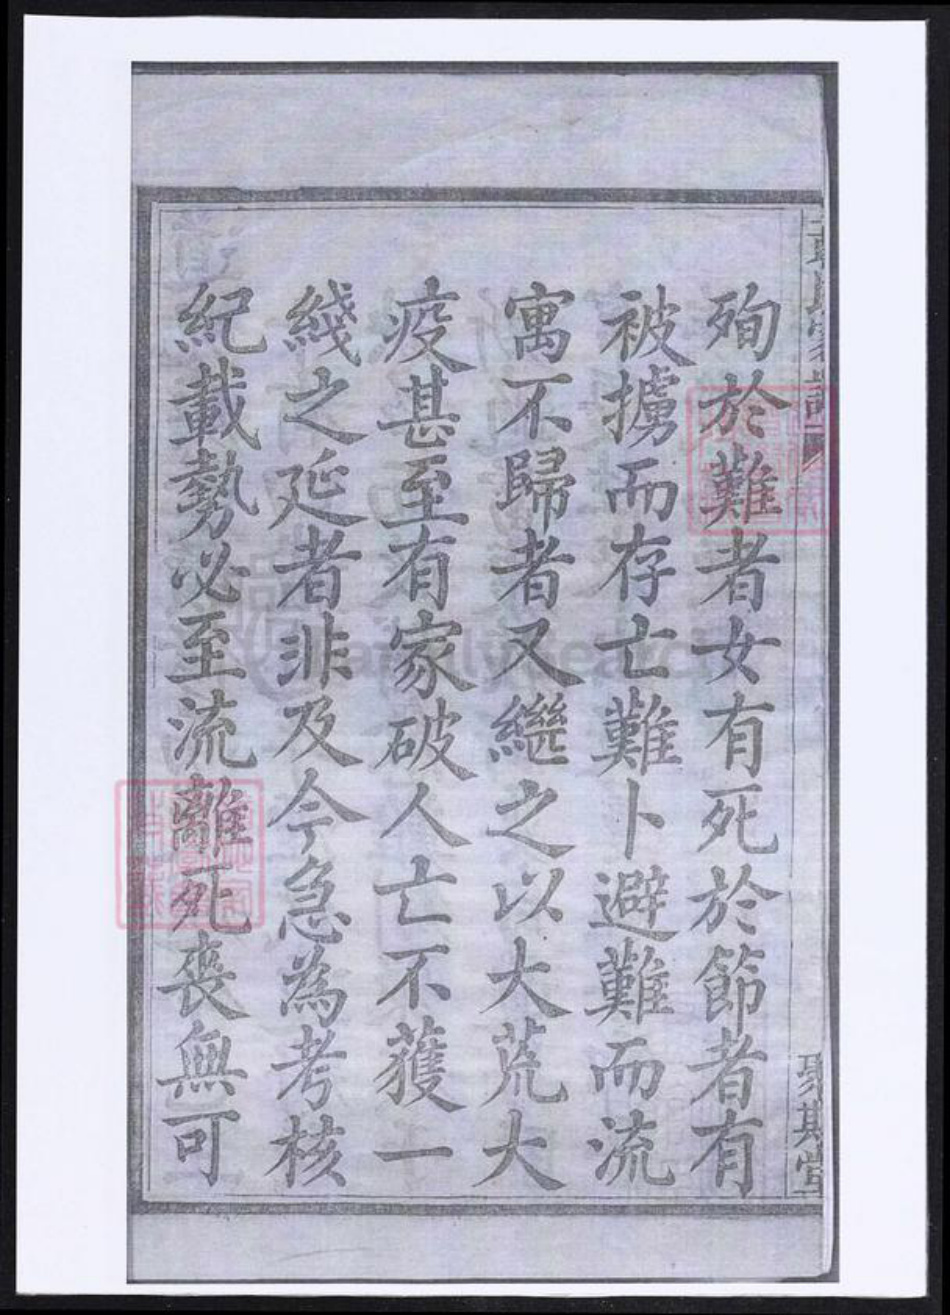 殉於難者女有死於節者有
被擄而存亡難卜避難而流
寓不歸者又繼之以大荒大
疫甚至有家破人亡不獲一
綫之延者非及今急為考核
紀載勢必至流離死喪無可